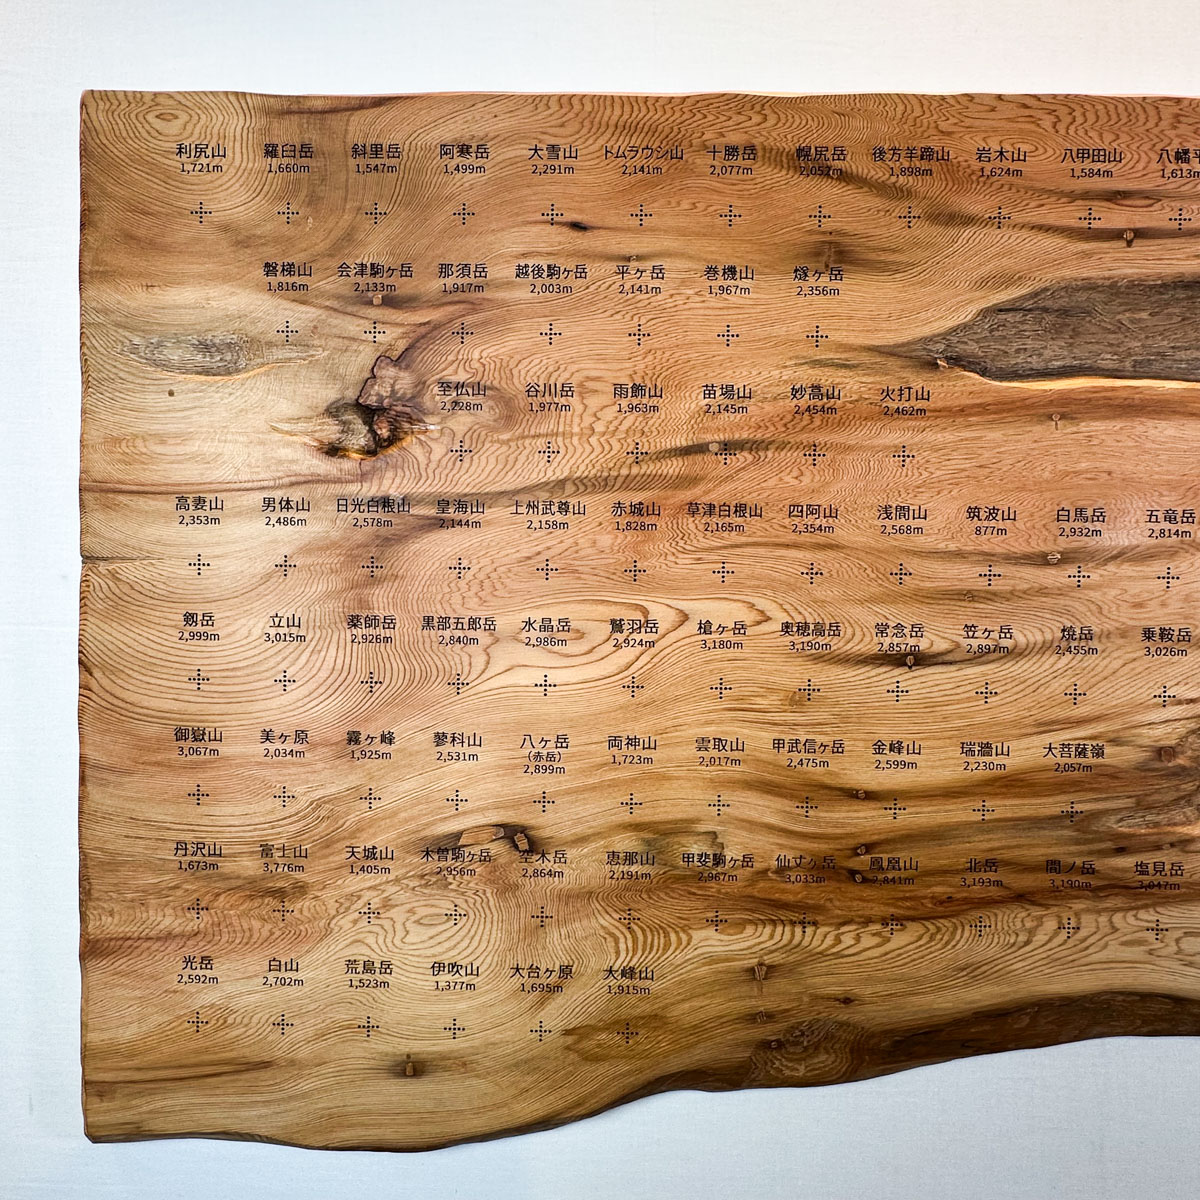 利尻山 羅臼岳 斜里岳 阿寒岳 大雪山 トムラウシ山 十勝岳 幌尻岳 後方羊蹄山 岩木山 八甲田山 八幡平
1,721m 1,660m 1,547m 1,499m 2,291m 2,141m 2,077m 2,052m 1,898m 1,624m 1,584m 1,613m
磐梯山 会津駒ヶ岳 那須岳 越後駒ヶ岳 平ヶ岳 巻機山 燧ヶ岳
1,816m 2,133m 1,917m 2,003m 2,141m 1,967m 2,356m
至仏山 谷川岳 雨飾山 苗場山 妙高山 火打山
2,228m 1,977m 1,963m 2,145m 2,454m 2,462m
高妻山 男体山 日光白根山 皇海山 上州武尊山 赤城山 草津白根山 四阿山 浅間山 筑波山 白馬岳 五竜岳
2,353m 2,486m 2,578m 2,144m 2,158m 1,828m 2,165m 2,354m 2,568m 877m 2,932m 2,814m
剱岳 立山 薬師岳 黒部五郎岳 水晶岳 鷲羽岳 槍ヶ岳 奥穂高岳 常念岳 笠ヶ岳 焼岳 乗鞍岳
2,999m 3,015m 2,926m 2,840m 2,986m 2,924m 3,180m 3,190m 2,857m 2,897m 2,455m 3,026m
御嶽山 美ヶ原 霧ヶ峰 蓼科山 八ヶ岳 両神山 雲取山 甲武信ヶ岳 金峰山 瑞牆山 大菩薩嶺
3,067m 2,034m 1,925m 2,531m (赤岳) 1,723m 2,017m 2,475m 2,599m 2,230m 2,057m
2,899m
丹沢山 富士山 天城山 木曽駒ヶ岳 空木岳 恵那山 甲斐駒ヶ岳 仙丈ヶ岳 鳳凰山 北岳 間ノ岳 塩見岳
1,673m 3,776m 1,405m 2,956m 2,864m 2,191m 2,967m 3,033m 2,841m 3,193m 3,190m 3,047m
光岳 白山 荒島岳 伊吹山 大台ヶ原 大峰山
2,592m 2,702m 1,523m 1,377m 1,695m 1,915m